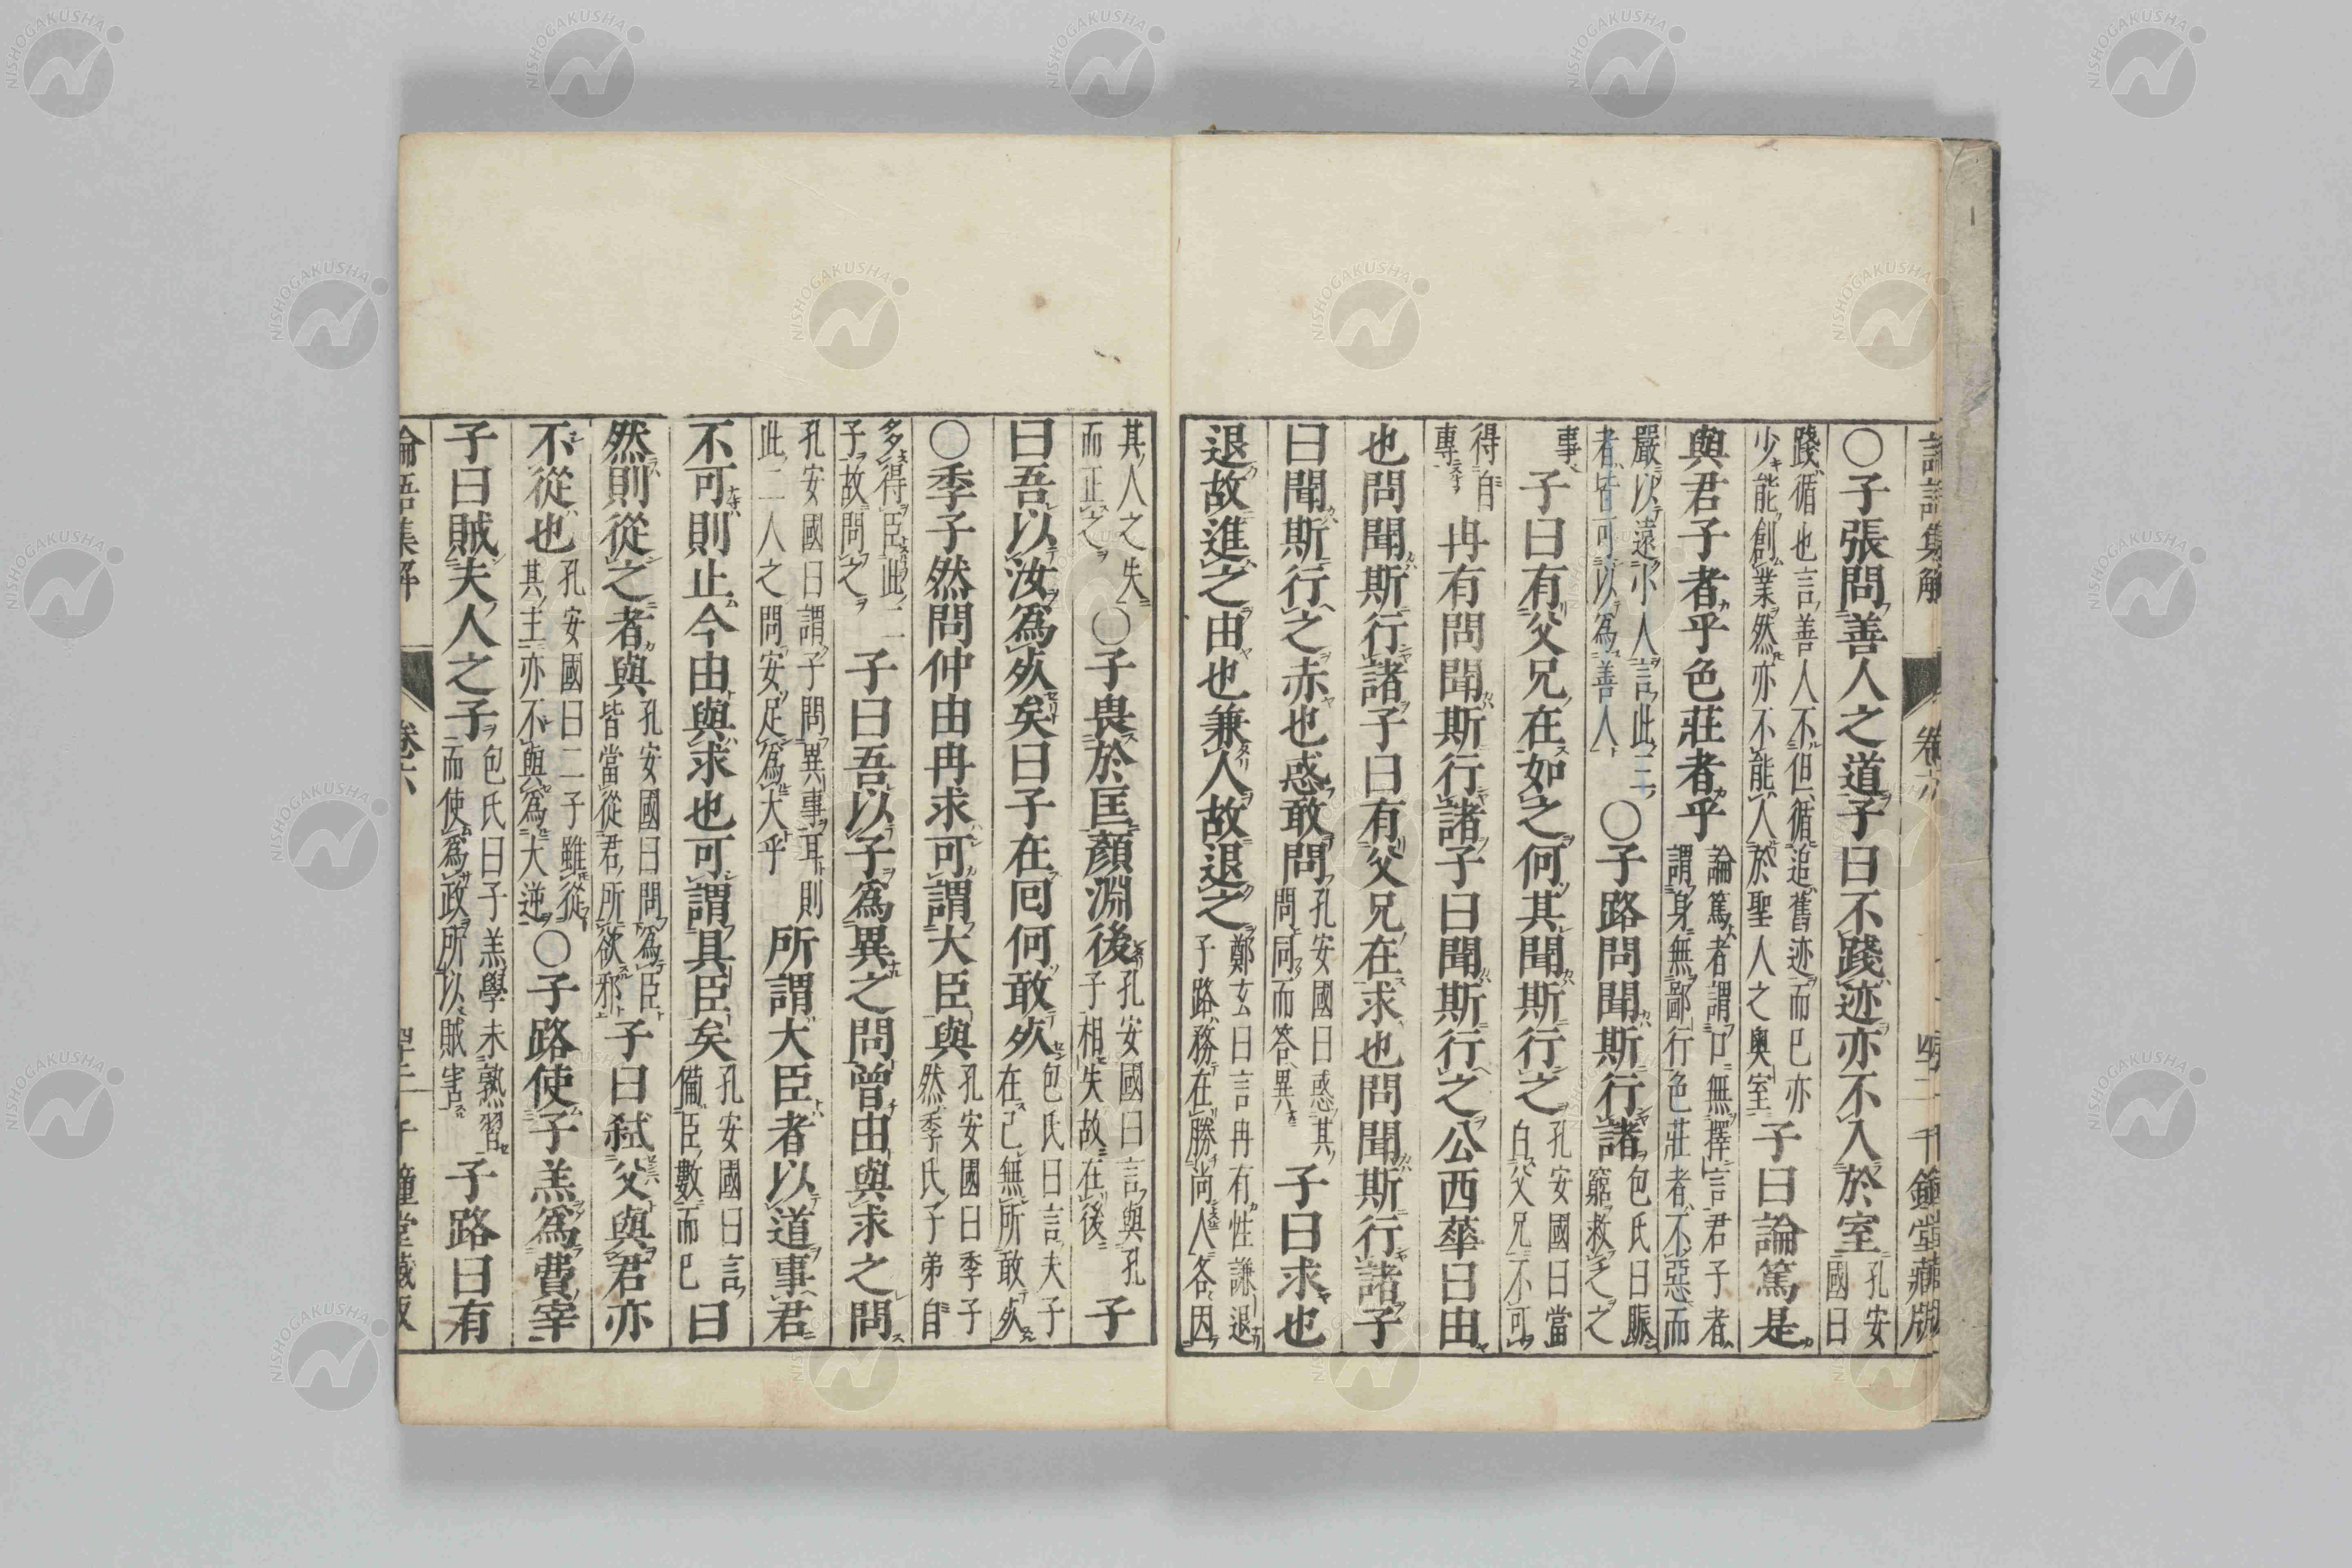 論語集解 卷六 千鍾堂藏版
〇子張問善人之道子曰不踐迹亦不入於室孔安國曰
踐循也言善人不但循追舊迹而已亦少能創業然亦不能入於聖人之奧室子曰論篤是
與君子者乎色莊者乎論篤者謂口無擇言君子者謂身無鄙行色莊者不惡而
嚴以遠小人言此三者皆可以為善人〇子路問聞斯行諸包氏曰賑窮救乏之
事子曰有父兄在如之何其聞斯行之孔安國曰當白父兄不可
得自專冉有問聞斯行諸子曰聞斯行之公西華曰由
也問聞斯行諸子曰有父兄在求也問聞斯行諸子
曰聞斯行之赤也惑敢問孔安國曰惑其問同而答異子曰求也
退故進之由也兼人故退之鄭玄曰言冉有性謙退子路務在勝尚人各因
其人之失而正之〇子畏於匡顏淵後孔安國曰言與孔子相失故在後子
曰吾以汝為死矣曰子在回何敢死包氏曰言夫子在己無所敢死
〇季子然問仲由冉求可謂大臣與孔安國曰季子然季氏子弟自
多得臣此二子故問之子曰吾以子為異之問曾由與求之問
孔安國曰謂子問異事耳則此二人之問安足為大乎所謂大臣者以道事君
不可則止今由與求也可謂具臣矣孔安國曰言備臣數而已曰
然則從之者與孔安國曰問為臣皆當從君所欲邪子曰弒父與君亦
不從也孔安國曰二子雖從其主亦不與為大逆〇子路使子羔為費宰
子曰賊夫人之子包氏曰子羔學未熟習而使為政所以賊害子路曰有
論語集解 卷六 千鍾堂藏版
NISHOGAKUSHA